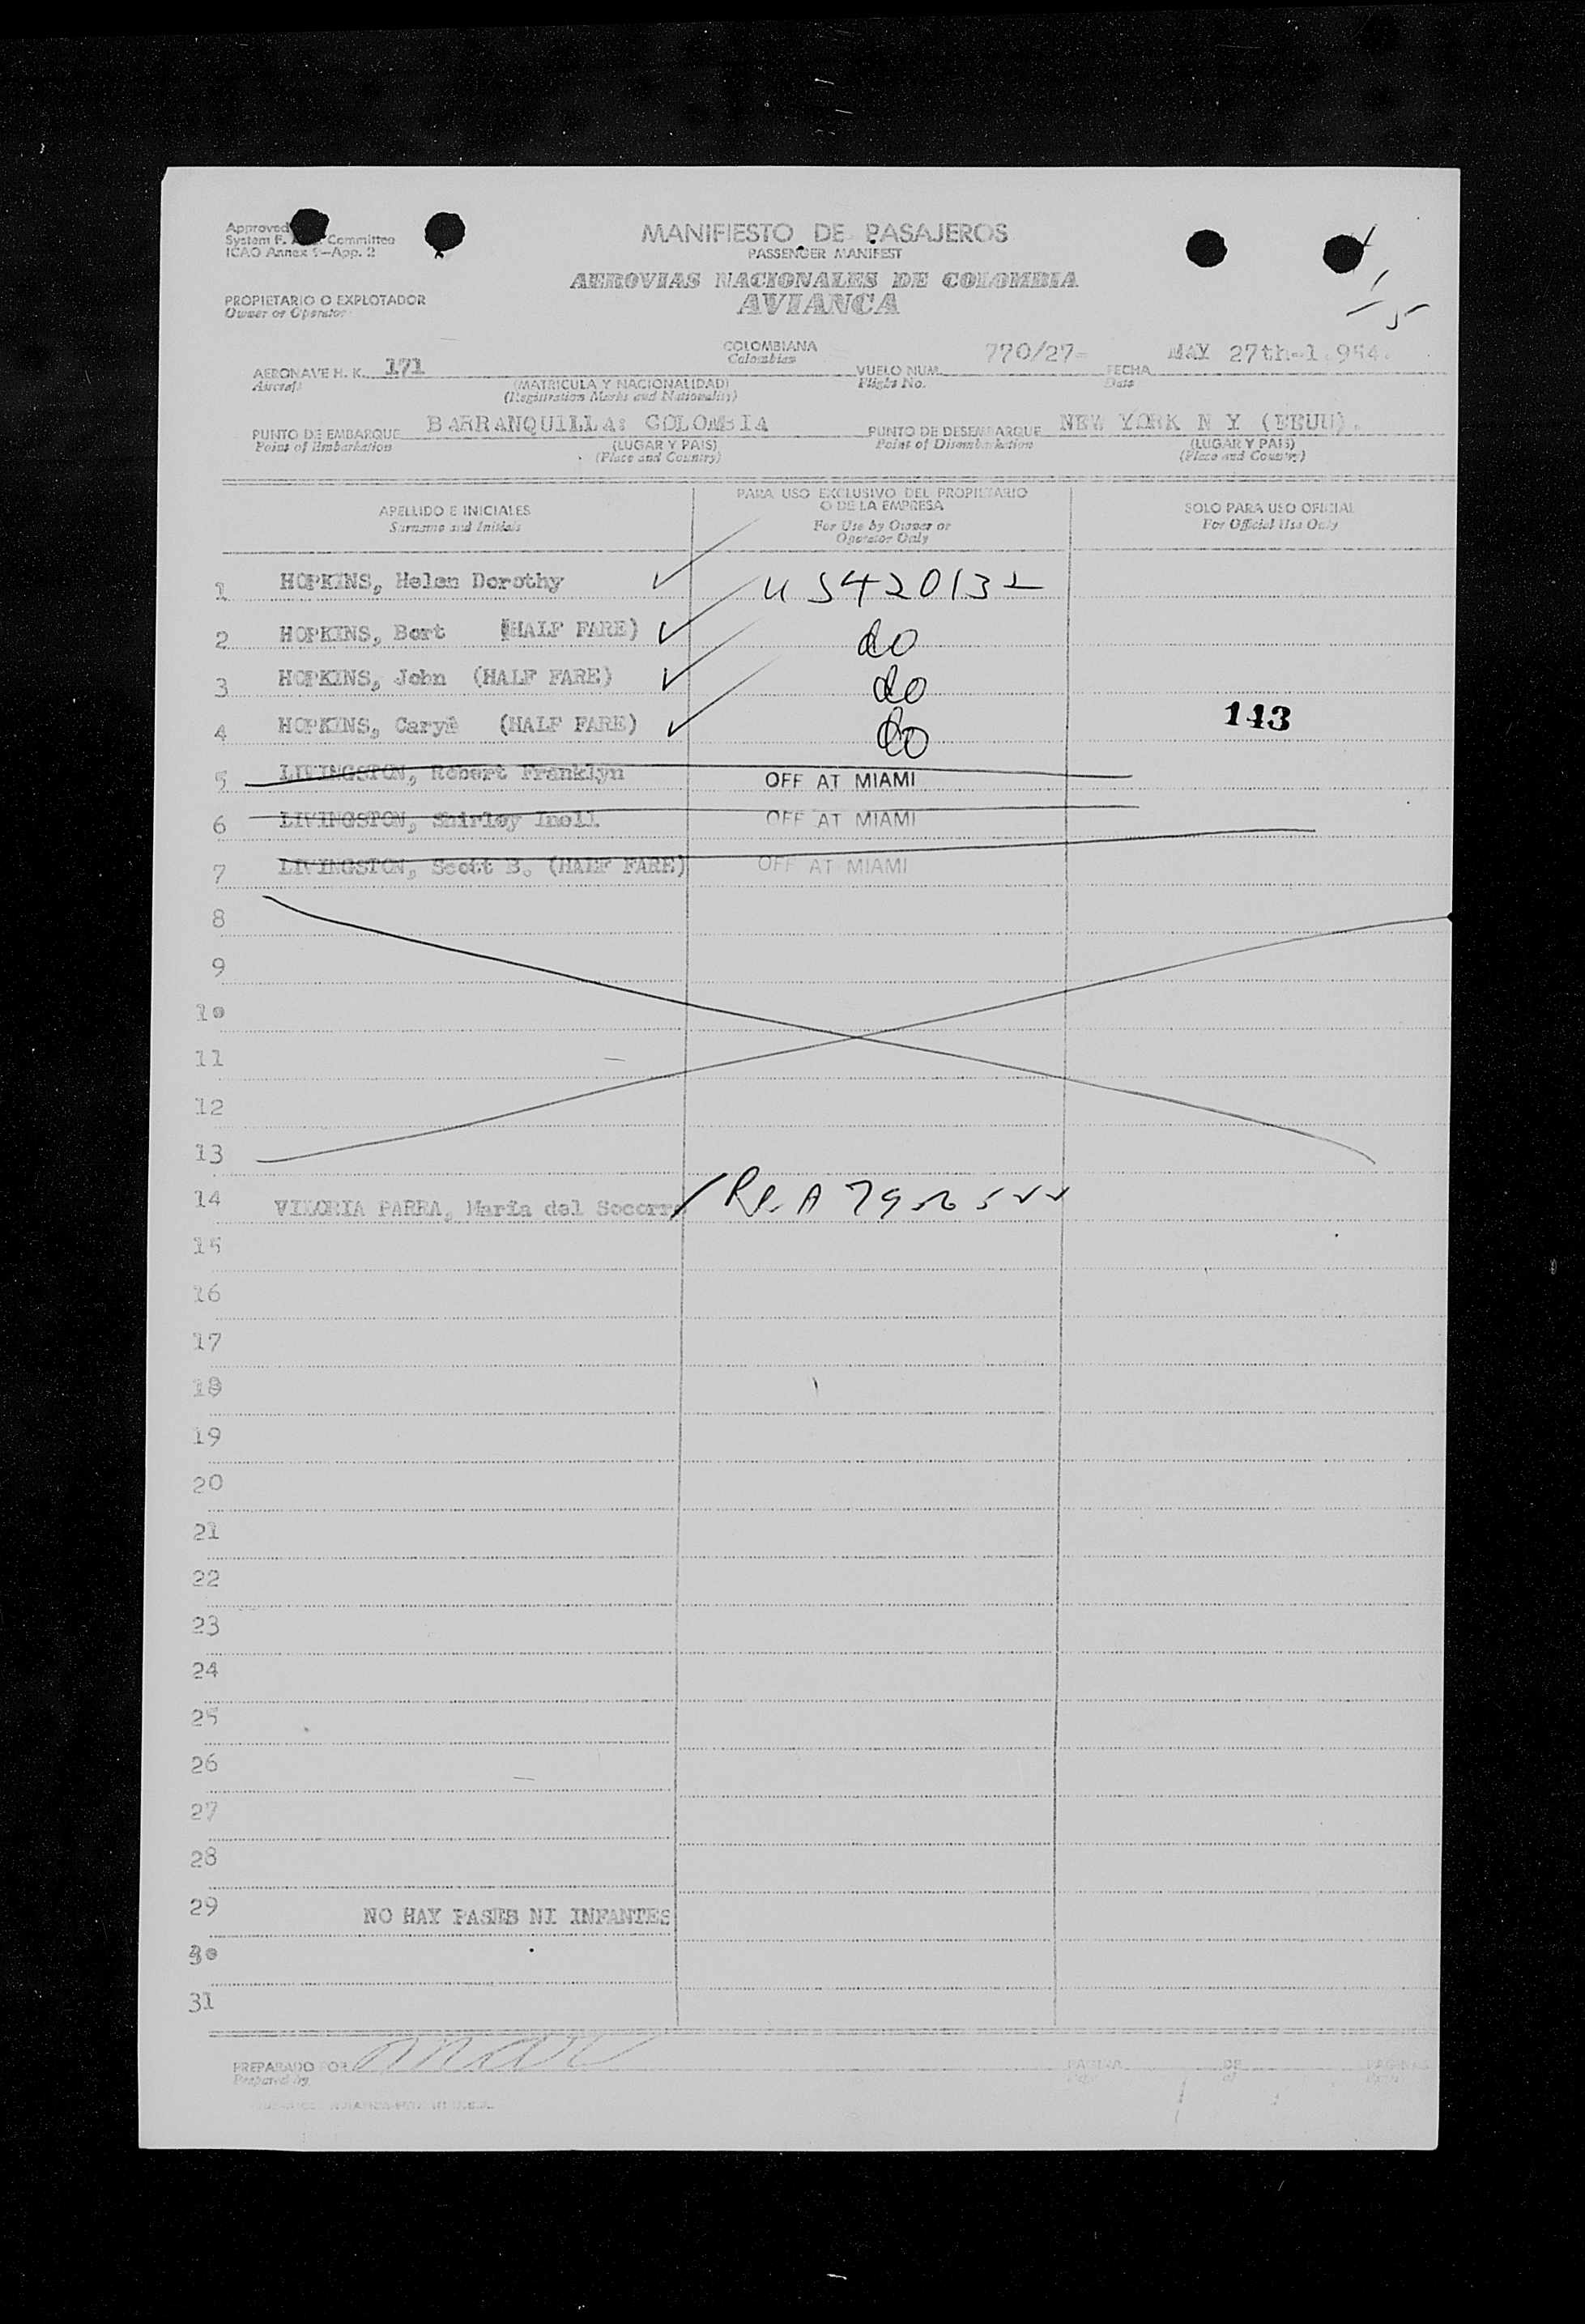 Approved
System F. Committee
ICAO Annex 9—App. 2
MANIFIESTO DE PASAJEROS
PASSENGER MANIFEST
AEROVIAS NACIONALES DE COLOMBIA
AVIANCA
PROPIETARIO O EXPLOTADOR
Owner or Operator
COLOMBIANA
Colombian
770/27=
MAY 27th-1.954.
AERONAVE H. K. 171
Aircraft
(MATRICULA Y NACIONALIDAD)
(Registration Marks and Nationality)
VUELO NUM.
Flight No.
FECHA
Date
PUNTO DE EMBARQUE BARRANQUILLA: COLOMBIA
Point of Embarkation
(LUGAR Y PAIS)
(Place and Country)
PUNTO DE DESEMBARQUE NEW YORK N Y (EEUU).
Point of Disembarkation
(LUGAR Y PAIS)
(Place and Country)
APELLIDO E INICIALES
Surname and Initials
PARA USO EXCLUSIVO DEL PROPIETARIO
O DE LA EMPRESA
For Use by Owner or
Operator Only
SOLO PARA USO OFICIAL
For Official Use Only
1 HOPKINS, Helen Dorothy US420132
2 HOPKINS, Bert (HALF FARE) do
3 HOPKINS, John (HALF FARE) do
4 HOPKINS, Caryn (HALF FARE) do 143
5 LIVINGSTON, Robert Franklyn OFF AT MIAMI
6 LIVINGSTON, Shirley Inell OFF AT MIAMI
7 LIVINGSTON, Scott B. (HALF FARE) OFF AT MIAMI
8
9
10
11
12
13
14 VILORIA PARRA, Maria del Socorro
15
16
17
18
19
20
21
22
23
24
25
26
27
28
29 NO HAY PASES NI INFANTES
30
31
PREPARADO POR
Prepared by
PAGINA
DE
of